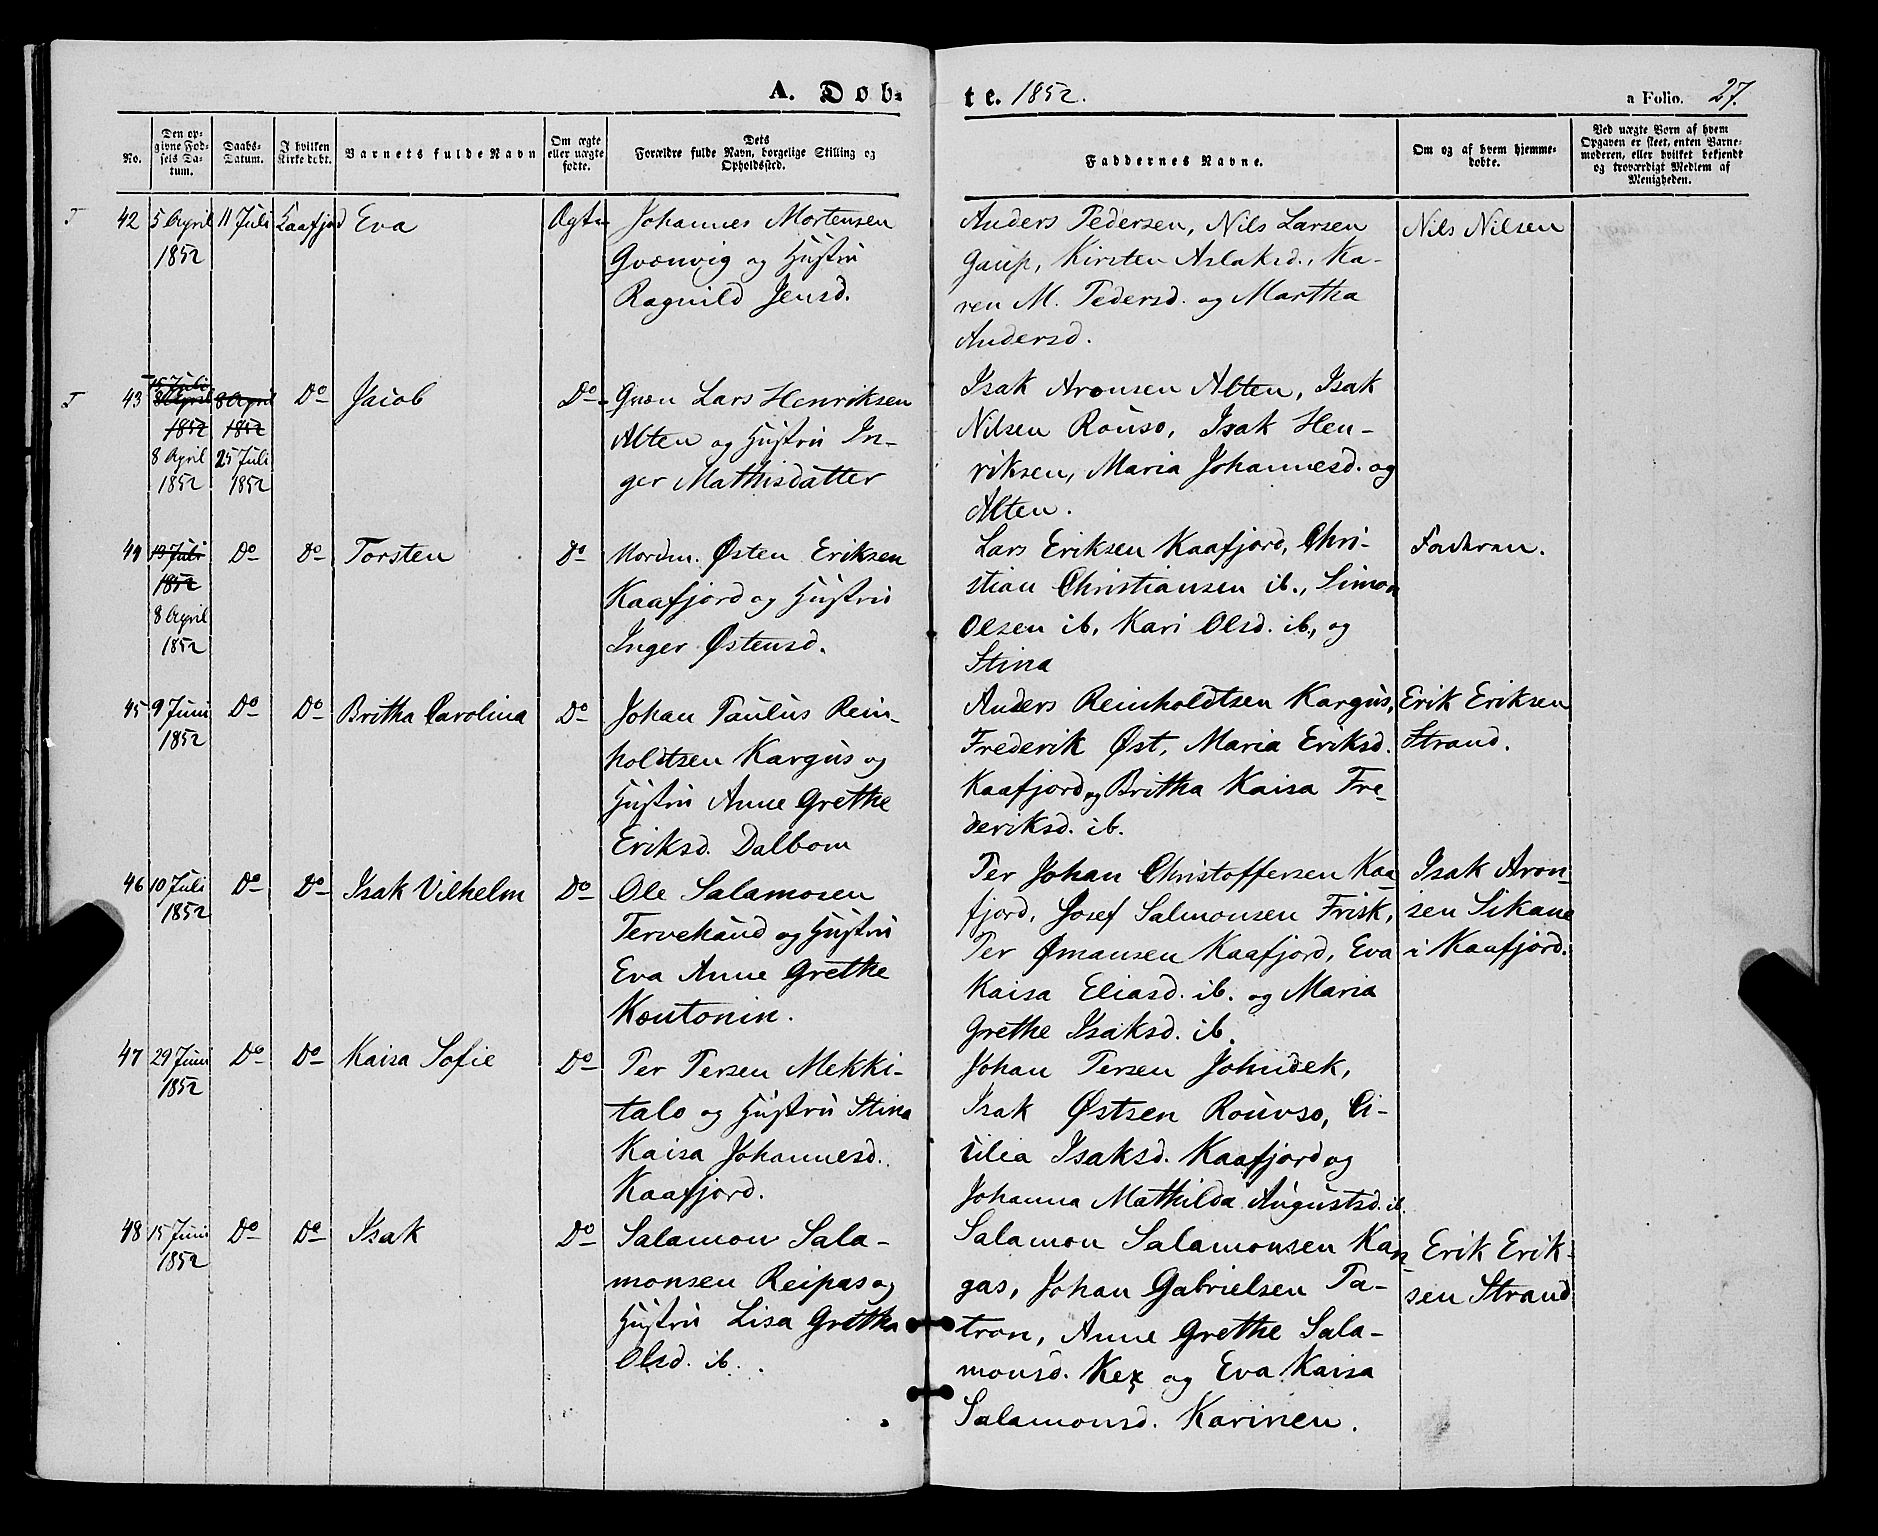 A. Døb-
te. 1852.
a Folio. 27.
No.
Den opgivne Fødsels Datum.
Daabs-Datum.
I hvilken Kirke døbt.
Barnets fulde Navn
Om ægte eller uægte fødte.
Dets Forældre fulde Navn, borgelige Stilling og Opholdssted.
Faddernes Navne.
Om og af hvem hjemmedøbte.
Ved uægte Børn af hvem Opgaven er skeet, enten Barnemoderen, eller hvilket bekjendt og troværdigt Medlem af Menigheden.
T 42 5 April 1852
11 Juli
Kaafjord
Eva
Ægte
Johannes Mortensen
Qvænvig og Hustru
Ragnild Jensd.
Anders Pedersen, Nils Larsen
Gaup, Kirsten Aslaksd., Ka-
ren M. Pedersd. og Martha
Andersd.
Nils Nilsen
T 43 15 Juli
8 April
1852
8 April
1852
8 April
1852
25 Juli
1852
Do
Jacob
Do
Qvæn Lars Henriksen
Alten og Hustru In-
ger Mathisdatter
Isak Aronsen Alten, Isak
Nilsen Rouso, Isak Hen-
riksen, Maria Johannesd. og
Alten.
44 13 Juli
1852
8 April
1852
Do
Do
Torsten
Do
Nordm. Østen Eriksen
Kaafjord og Hustru
Inger Østensd.
Lars Eriksen Kaafjord, Chri-
stian Christiansen ib., Simon
Olsen ib, Kari Olsd. ib, og
Stina
Faderen.
45 9 Juni
1852
Do
Do
Britha Carolina
Do
Johan Paulus Rein-
holdtsen Kargus og
Hustru Anne Grethe
Eriksd. Dalbom
Anders Reinholdtsen Kargus,
Frederik Øst, Maria Eriksd.
Kaafjord og Britha Kaisa Fre-
deriksd. ib.
Erik Eriksen
Strand.
46 10 Juli
1852
Do
Do
Isak Vilhelm
Do
Ole Salamosen
Tervehaud og Hustru
Eva Anne Grethe
Kœntonin.
Per Johan Christoffersen Kaa-
fjord, Josef Salmonsen Frisk,
Per Ømansen Kaafjord, Eva
Kaisa Eliasd. ib. og Maria
Grethe Isaksd. ib.
Isak Aron-
sen Sikane
i Kaafjord.
47 29 Juni
1852
Do
Do
Kaisa Sofie
Do
Per Persen Mekki-
talo og Hustru Stina
Kaisa Johannesd.
Kaafjord.
Johan Persen Johndek,
Isak Østsen Rouvso, Ci-
cilia Isaksd. Kaafjord og
Johanna Mathilda Augustsd. ib
48 15 Juni
1852
Do
Do
Isak
Do
Salamon Sala-
monsen Reipas og
Hustru Lisa Gretha
Olsd. ib.
Salamon Salamonsen Kan-
gas, Johan Gabrielsen Pa-
tron, Anne Grethe Sala-
monsd. Kex og Eva Kaisa
Salamonsd. Karinen.
Erik Erik-
sen Strand